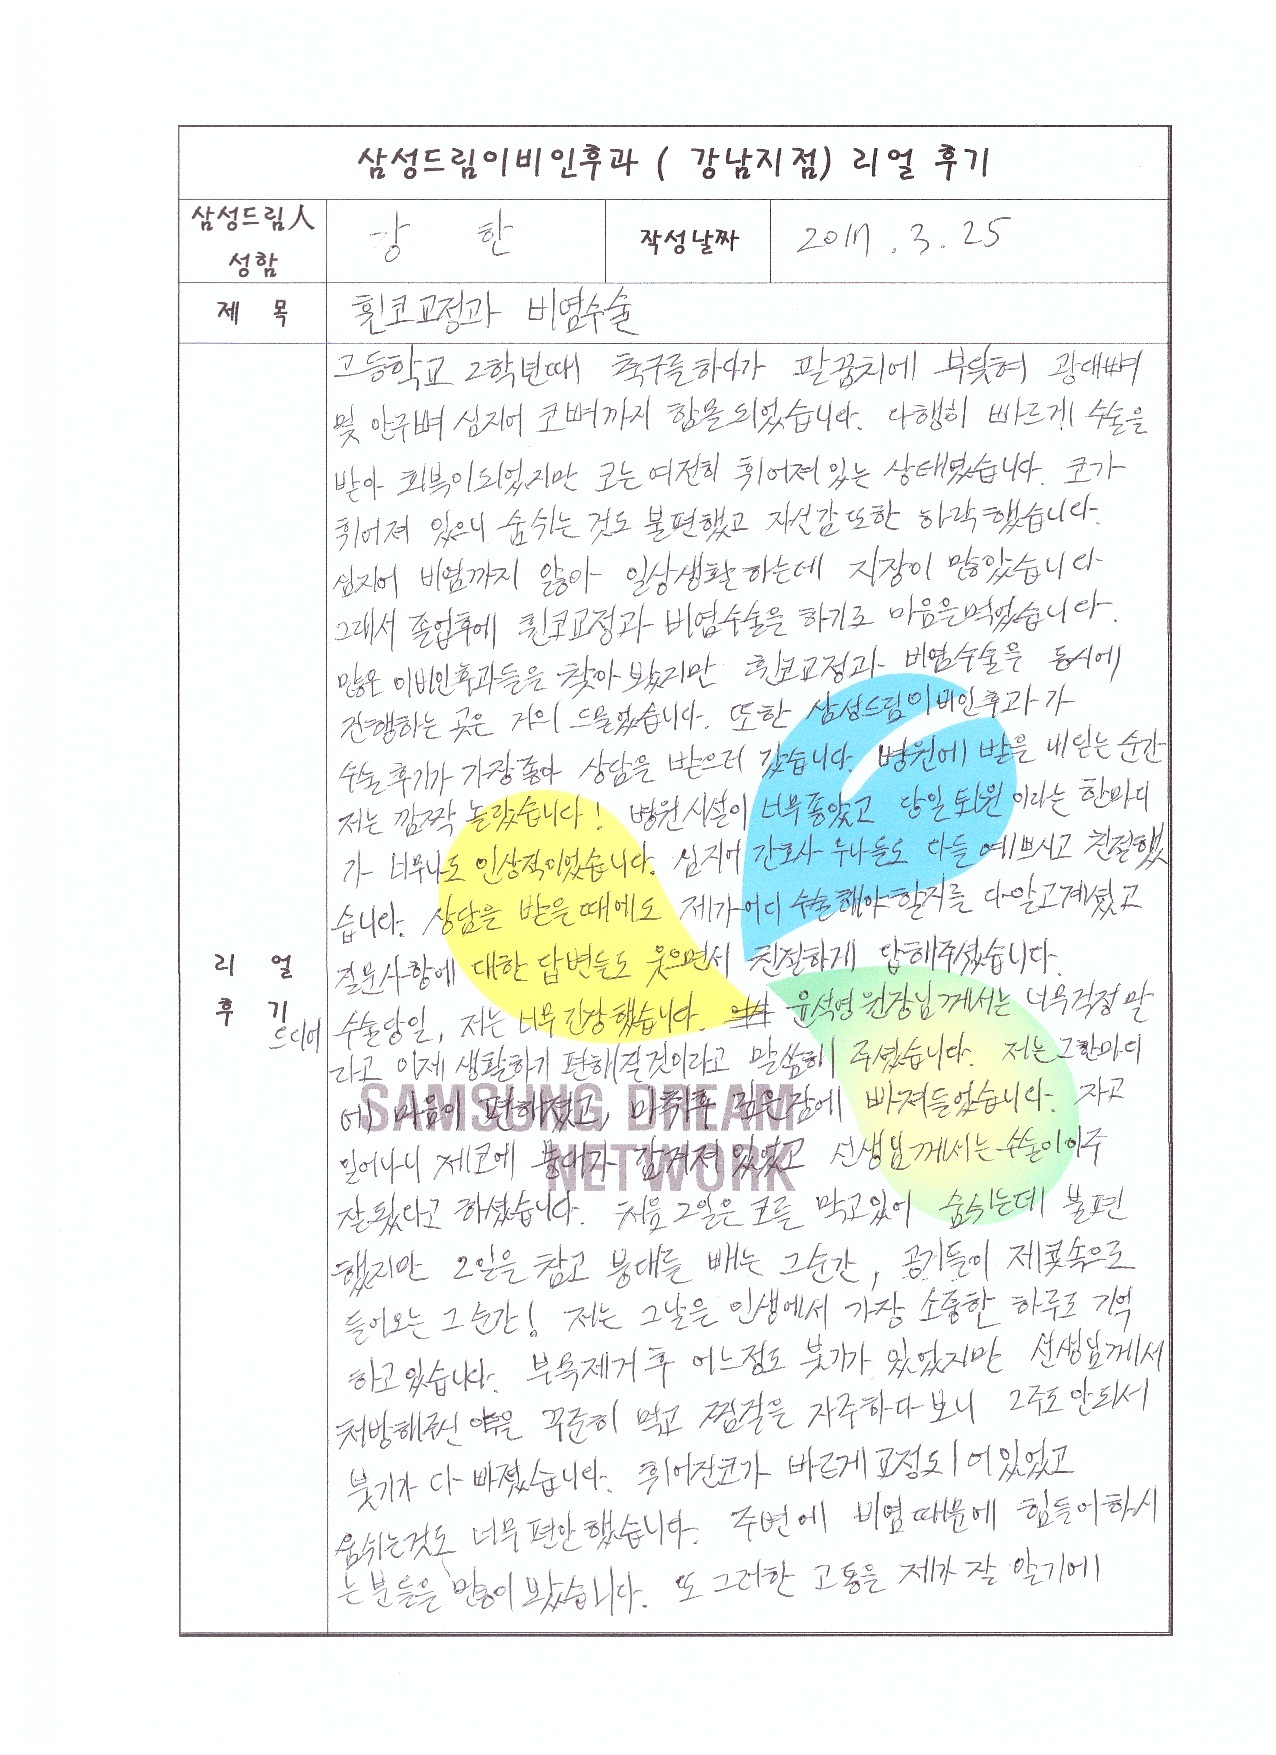 삼성드림이비인후과 ( 강남지점) 리얼 후기
삼성드림人 성함
강 한
작성날짜
2017 . 3 . 25
제 목
휜코교정과 비염수술
리 얼 후 기
고등학교 2학년때 축구를하다가 팔꿈치에 부딪혀 광대뼈
및 안구뼈 심지어 코뼈까지 함몰되었습니다. 다행히 빠르게 수술을
받아 회복이되었지만 코는 여전히 휘어져있는 상태였습니다. 코가
휘어져 있으니 숨쉬는 것도 불편했고 자신감또한 하락했습니다.
심지어 비염까지 앓아 일상생활하는데 지장이 많았습니다
그래서 졸업후에 휜코교정과 비염수술을 하기로 마음을먹었습니다.
많은 이비인후과들을 찾아보았지만 휜코교정과 비염수술을 동시에
진행하는 곳은 거의 드물었습니다. 또한 삼성드림이비인후과가
수술후기가 가장좋아 상담을 받으러 갔습니다. 병원에 발을 내딛는 순간
저는 깜짝 놀랐습니다! 병원시설이 너무좋았고 당일퇴원 이라는 한마디
가 너무나도 인상적이었습니다. 심지어 간호사 누나들도 다들 예쁘시고 친절했
습니다. 상담을 받을때에도 제가어디 수술해야할지를 다알고계셨고
질문사항에 대한 답변들도 웃으면서 친절하게 답해주셨습니다.
드디어 수술당일, 저는 너무긴장했습니다. 윤석영원장님께서는 너무걱정말
라고 이제 생활하기 편해질것이라고 말씀해 주셨습니다. 저는그한마디
에 마음이 편해졌고, 마취후 깊은잠에 빠져들었습니다. 자고
일어나니 제코에 붕대가 감겨져있었고 선생님께서는수술이아주
잘됐다고 하셨습니다. 처음2일은코를 막고있어 숨쉬는데 불편
했지만 2일을 참고 붕대를 빼는 그순간, 공기들이 제콧속으로
들어오는 그순간! 저는 그날은 인생에서 가장 소중한 하루로 기억
하고있습니다. 부목제거후 어느정도 붓기가 있었지만 선생님께서
처방해주신 약을 꾸준히 먹고 찜질을 자주하다보니 2주도안되서
붓기가 다빠졌습니다. 휘어진코가 바르게교정되어있었고
숨쉬는것도 너무편안했습니다. 주변에 비염때문에 힘들어하시
는분들을 많이봤습니다. 또 그러한 고통을 제가 잘 알기에
SAMSUNG DREAM
NETWORK